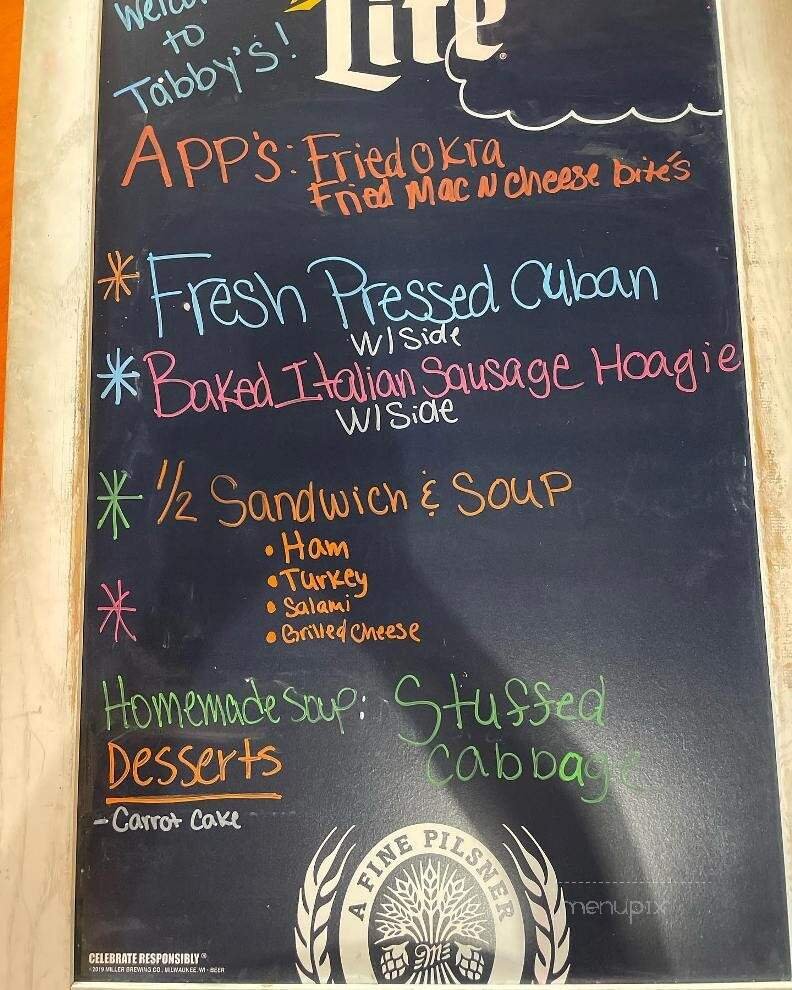 to
Tabby's!
Lite
APP's: Fried okra
Fried Mac N cheese bite's
Fresh Pressed Cuban
W/Side
Baked Italian Sausage Hoagie
W/Side
1/2 Sandwich & Soup
• Ham
• Turkey
• Salami
• Grilled Cheese
Homemade Soup: Stuffed
cabbage
Desserts
- Carrot Cake
A FINE PILSNER
menupix
CELEBRATE RESPONSIBLY®
©2019 MILLER BREWING CO., MILWAUKEE, WI • BEER